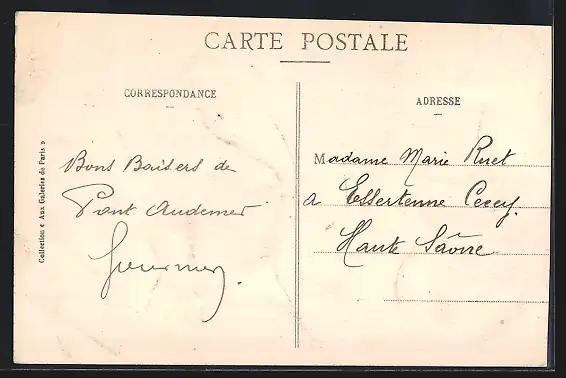 CARTE POSTALE
CORRESPONDANCE
ADRESSE
Collection « Aux Galeries de Paris »
Bons Baisers de
Pont Audemer
Madame Marie Ruet
a Essertenne Cecey
Haute Saône